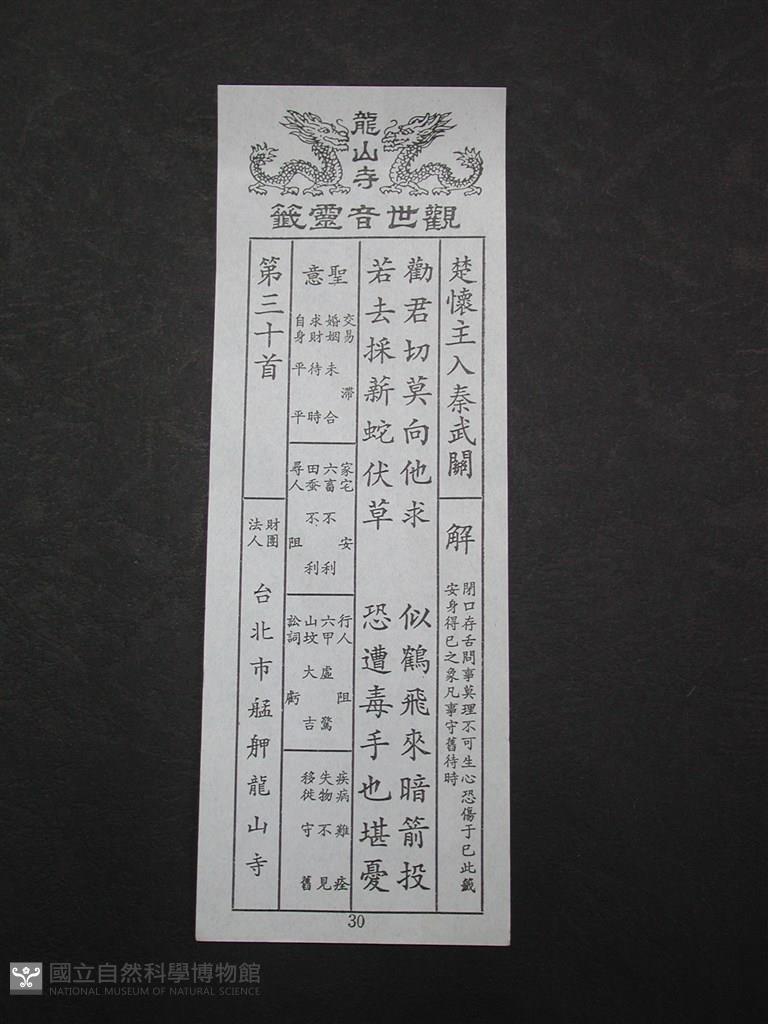 龍山寺
觀世音靈籤
楚懷主入秦武關
解
閉口存舌問事莫理不可生心恐傷于已此籤
安身得已之象凡事守舊待時
勸君切莫向他求　似鶴飛來暗箭投
若去採薪蛇伏草　恐遭毒手也堪憂
聖意
交易　滯
婚姻　未合
求財　待時
自身　平平
家宅　安
六畜　不利
田蚕　不利
尋人　阻
行人　阻
六甲　虛驚
山坟　大吉
訟詞　虧
疾病　難痊
失物　不見
移徙　守舊
第三十首
財團法人
台北市艋舺龍山寺
30
國立自然科學博物館
NATIONAL MUSEUM OF NATURAL SCIENCE